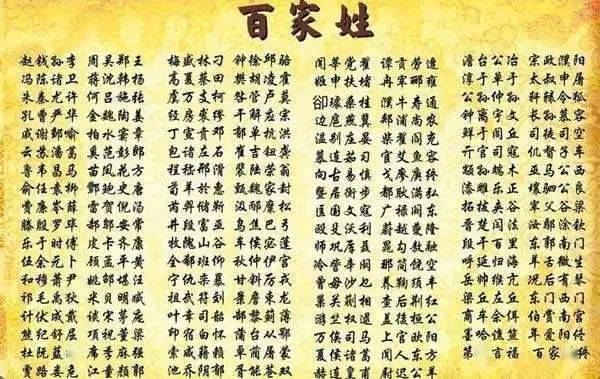 百家姓
赵钱孙李 周吴郑王 梅盛林刁 钟徐邱骆 闻莘党翟 谭贡劳逄 澹台公冶 宗政濮阳
冯陈褚卫 蒋沈韩杨 高夏蔡田 樊胡凌霍 姬申扶堵 冉宰郦雍 淳于单于 太叔申屠
朱秦尤许 何吕施张 虞万支柯 昝管卢莫 卻璩桑桂 濮牛寿通 公孙仲孙 轩辕令狐
孔曹严华 金魏陶姜 经房裘缪 干解应宗 边扈燕冀 郏浦尚农 钟离宇文 长孙慕容
戚谢邹喻 柏水窦章 丁宣贲邓 郁单杭洪 温别庄晏 柴瞿阎充 鲜于闾丘 司徒司空
云苏潘葛 奚范彭郎 包诸左石 崔吉钮龚 慕连茹习 宦艾鱼容 亓官司寇 仉督子车
鲁韦昌马 苗凤花方 程嵇邢滑 裴陆荣翁 向古易慎 戈廖庾终 颛孙端木 巫马公西
俞任袁柳 酆鲍史唐 荀羊於惠 甄曲家封 暨居衡步 都耿满弘 漆雕乐正 壤驷公良
费廉岑薛 雷贺倪汤 芮羿储靳 汲邴糜松 匡国文寇 广禄阙东 拓跋夹谷 宰父谷梁
滕殷罗毕 郝邬安常 井段富巫 乌焦巴弓 欧殳沃利 蔚越夔隆 晋楚闫法 汝鄢涂钦
乐于时傅 皮卞齐康 牧隗山谷 车侯宓蓬 师巩厍聂 晁勾敖融 段干百里 东郭南门
伍余元卜 顾孟平黄 全郗班仰 秋仲伊宫 冷訾辛阚 那简饶空 呼延归海 羊舌微生
和穆萧尹 姚邵湛汪 宁仇栾暴 甘钭厉戎 曾毋沙乜 养鞠须丰 岳帅缑亢 况后有琴
祁毛禹狄 米贝明臧 祖武符刘 景詹束龙 巢关蒯相 查后荆红 梁丘左丘 东门西门
计伏成戴 谈宋茅庞 叶幸司韶 郜黎蓟薄 游竺权逯 盖益桓公 商牟佘佴 伯赏南宫
熊纪舒屈 项祝董梁 印宿白怀 蒲邰从鄂 万俟司马 上官欧阳 墨哈谯笪 年爱阳佟
杜阮蓝闵 席季麻强 索咸籍赖 卓蔺屠蒙 夏侯诸葛 闻人东方 第五言福 百家姓终
贾路娄危 江童颜郭 池乔阴 胥能苍双 赫连皇甫 尉迟公羊